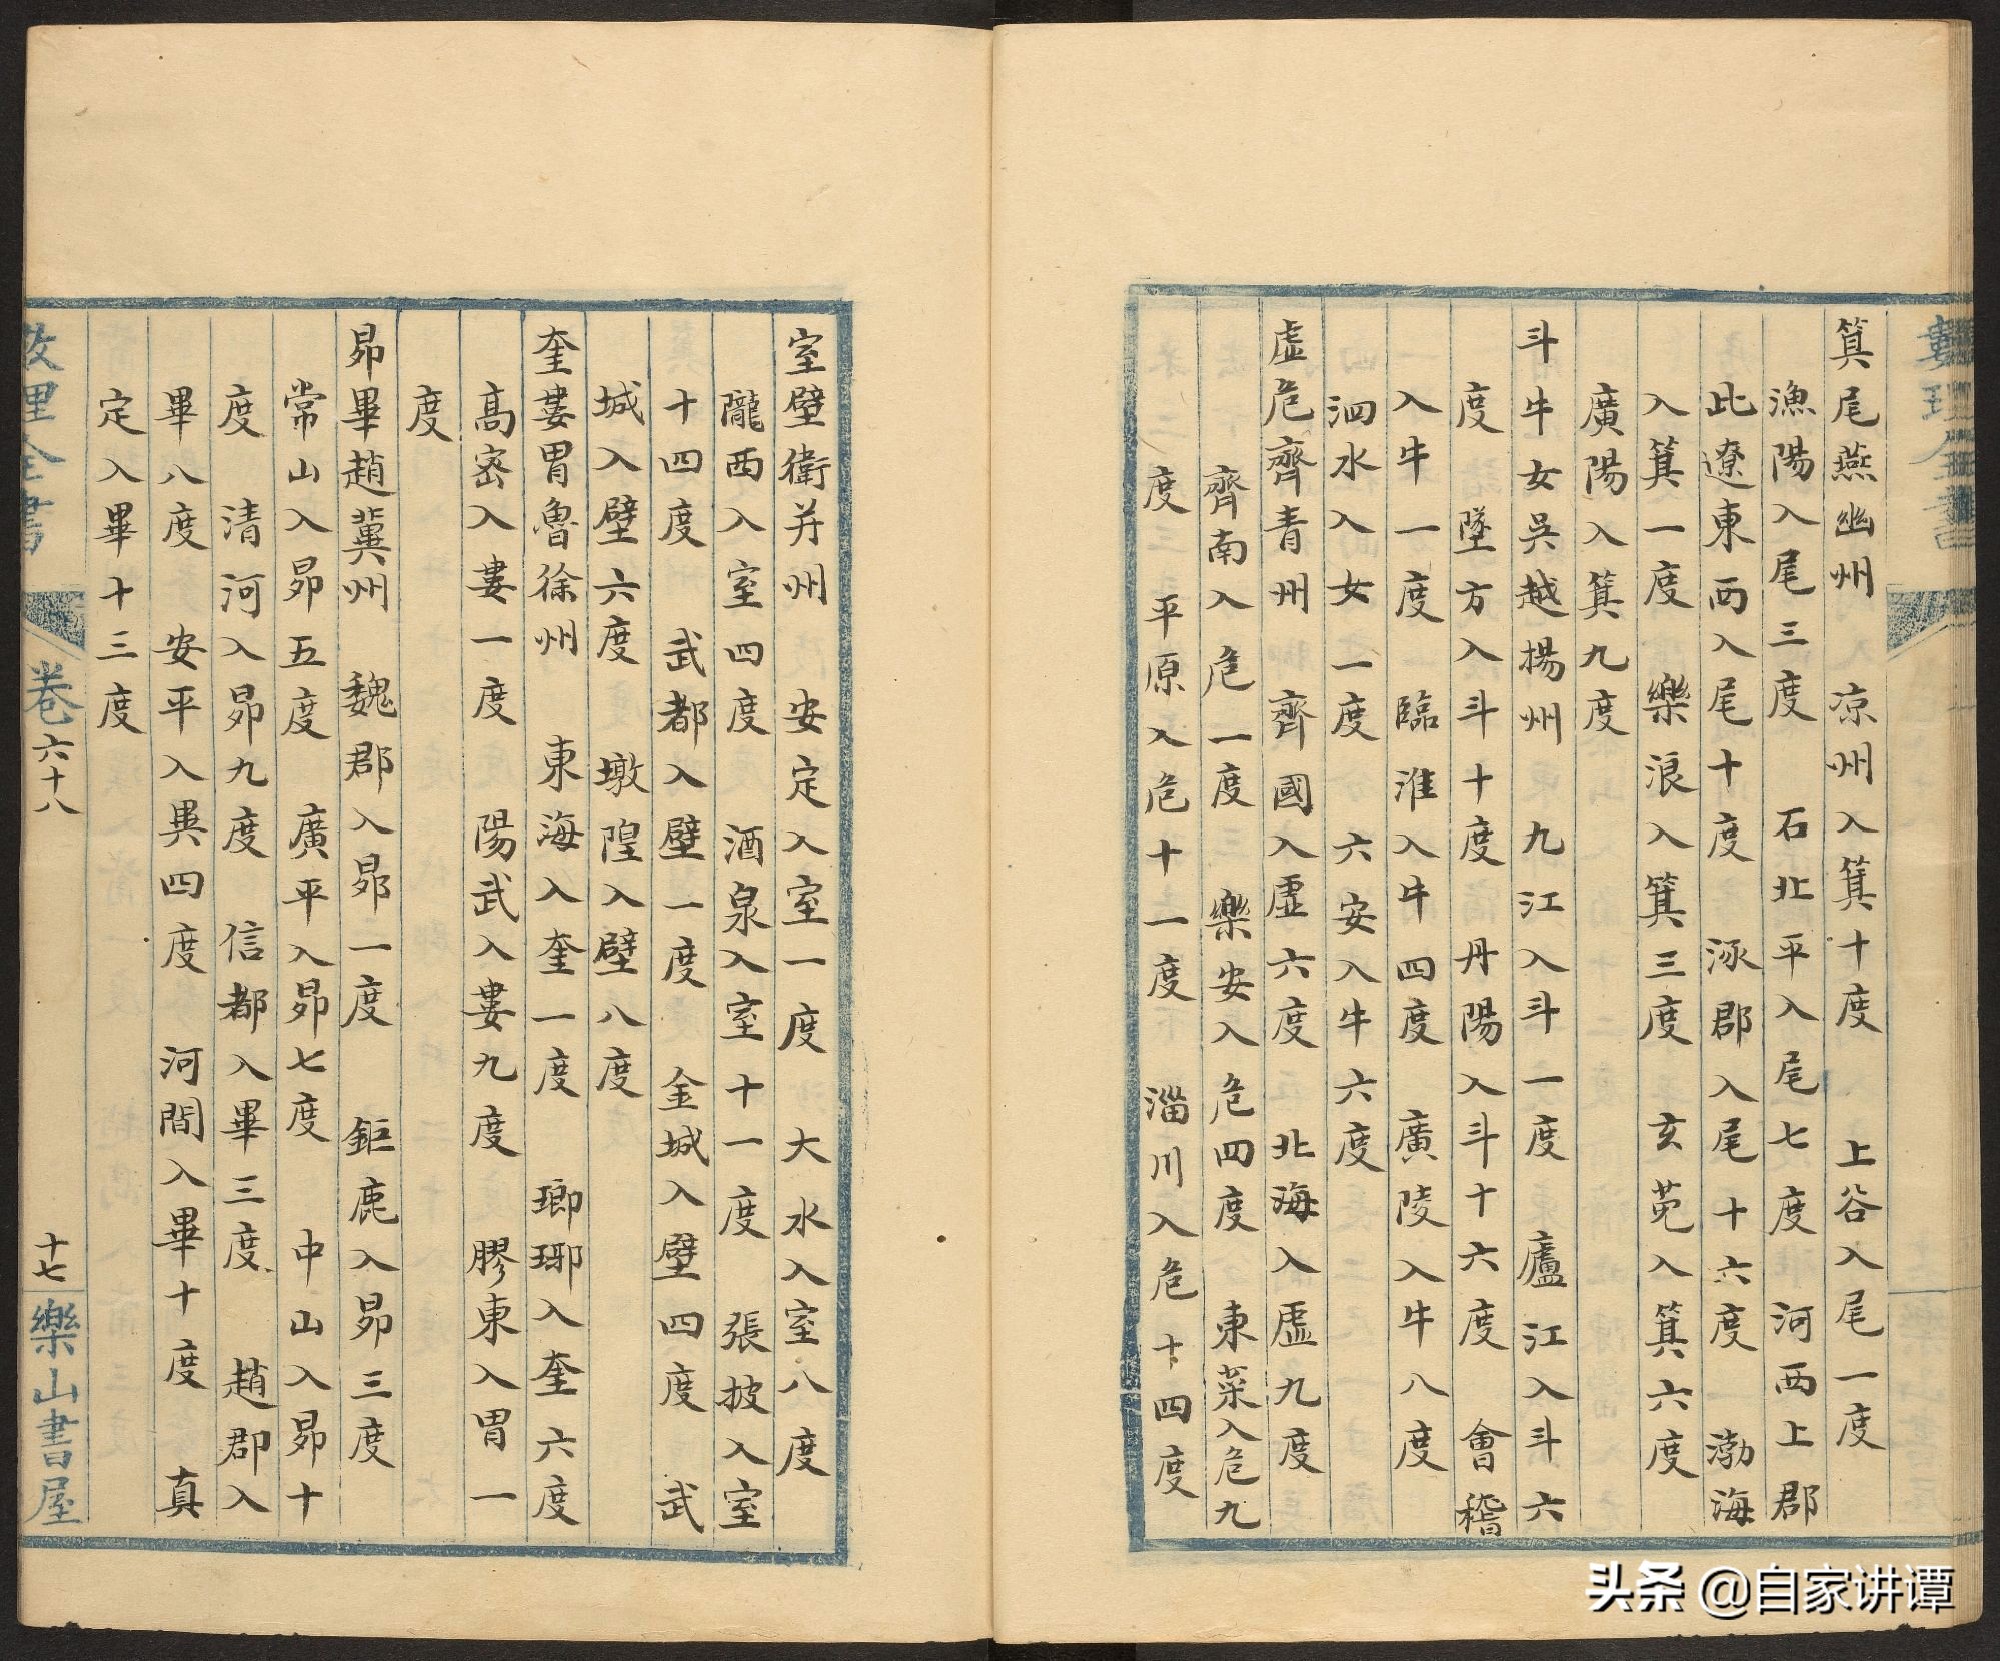 箕尾燕幽州　凉州入箕十度　上谷入尾一度
漁陽入尾三度　石北平入尾七度　河西上郡
此遼東西入尾十度　涿郡入尾十六度　渤海
入箕一度　樂浪入箕三度　玄菟入箕六度
廣陽入箕九度
斗牛女吳越揚州　九江入斗一度　廬江入斗六
度　墜方入斗十度　丹陽入斗十六度　會稽
入牛一度　臨淮入牛四度　廣陵入牛八度
泗水入女一度　六安入牛六度
虛危齊青州　齊國入虛六度　北海入虛九度
齊南入危一度　樂安入危四度　東萊入危九
度　平原入危十一度　淄川入危十四度
室壁衛并州　安定入室一度　大水入室八度
隴西入室四度　酒泉入室十一度　張掖入室
十四度　武都入壁一度　金城入壁四度　武
城入壁六度　墩隍入壁八度
奎婁胃魯徐州　東海入奎一度　瑯琊入奎六度
高密入婁一度　陽武入婁九度　膠東入胃一
度
昴畢趙冀州　魏郡入昴一度　鉅鹿入昴三度
常山入昴五度　廣平入昴七度　中山入昴十
度　清河入昴九度　信都入畢三度　趙郡入
畢八度　安平入畢四度　河間入畢十度　真
定入畢十三度
數理全書　卷六十八　十七　樂山書屋
头条 @自家讲谭